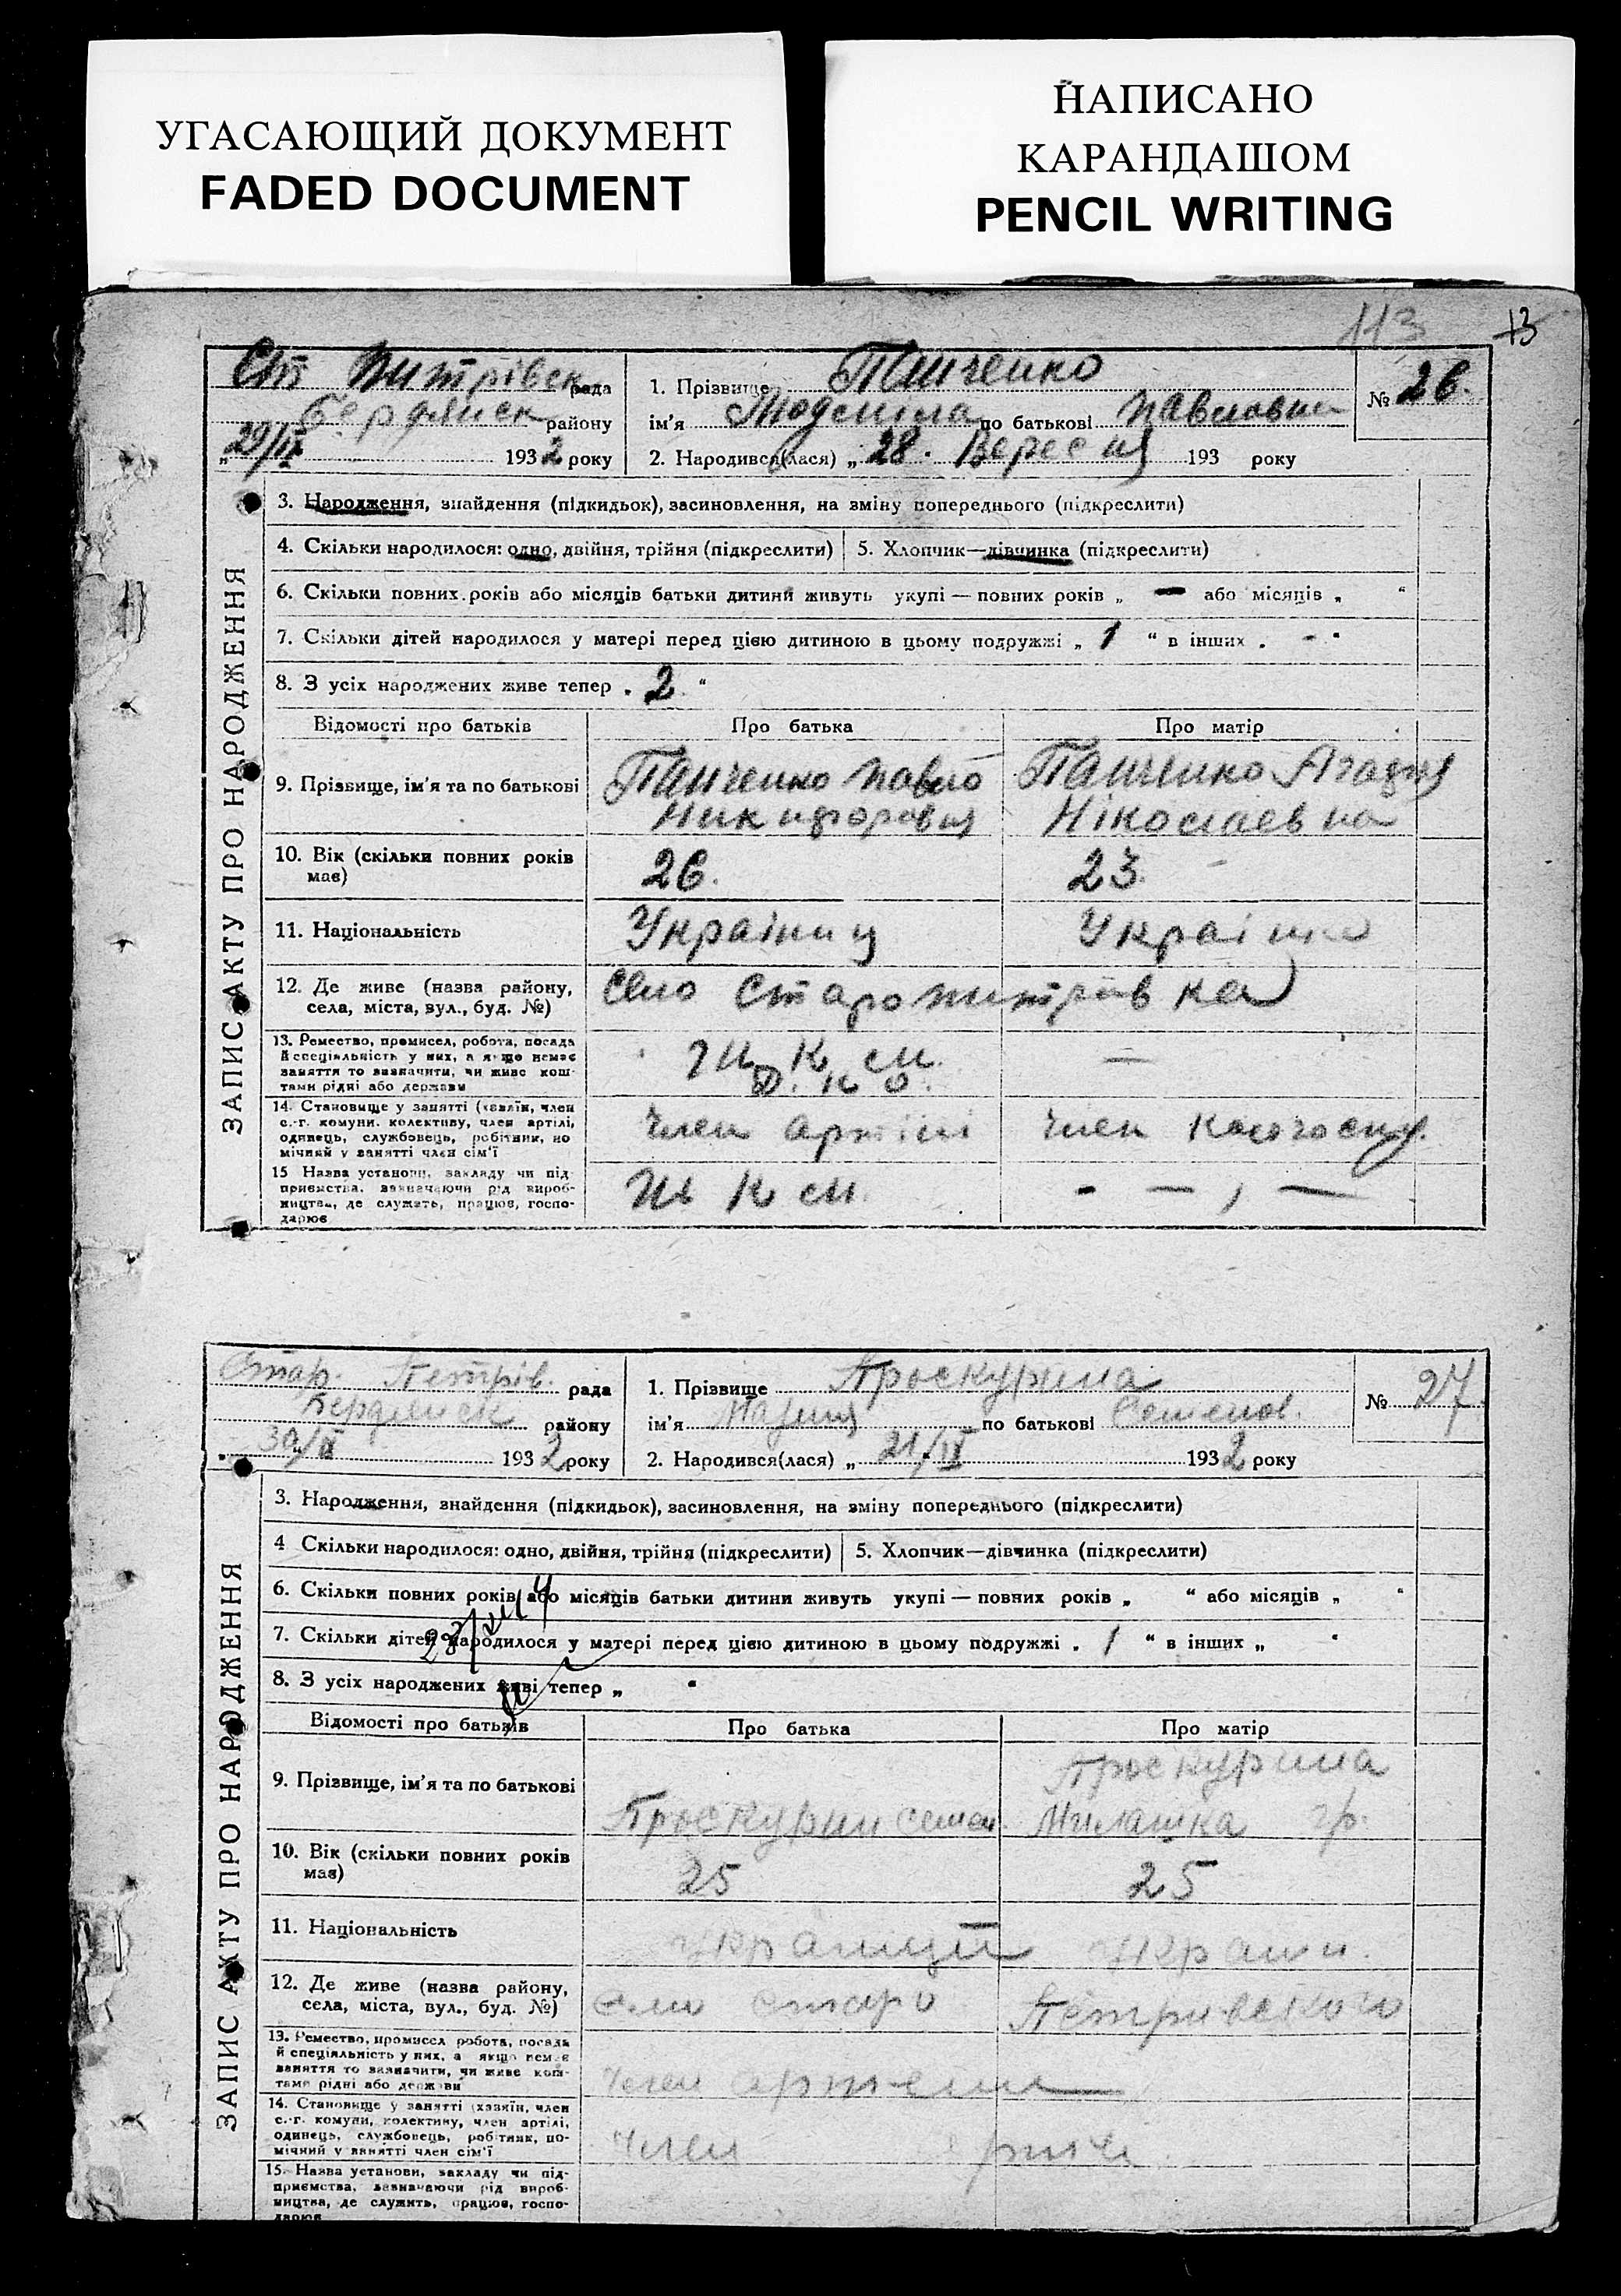 УГАСАЮЩИЙ ДОКУМЕНТ
FADED DOCUMENT
НАПИСАНО
КАРАНДАШОМ
PENCIL WRITING
113 13
Ст Питрівск рада
Бердянск району
„29/ІХ 1932 року
1. Прізвище Панченко
ім'я Людміла по батькові Павловна
2. Народився(лася) „28. Вересня 193 року
№ 26.
ЗАПИС АКТУ ПРО НАРОДЖЕННЯ
3. Народження, знайдення (підкидьок), засиновлення, на зміну попереднього (підкреслити)
4. Скільки народилося: одно, двійня, трійня (підкреслити) 5. Хлопчик—дівчинка (підкреслити)
6. Скільки повних років або місяців батьки дитини живуть укупі — повних років „ — або місяців „ “
7. Скільки дітей народилося у матері перед цією дитиною в цьому подружжі „ 1 “ в інших „ - “
8. З усіх народжених живе тепер „ 2. “
Відомості про батьків Про батька Про матір
9. Прізвище, ім'я та по батькові
Панченко Павло
Никифоровия
Панченко Агафия
Ніколаевна
10. Вік (скільки повних років
має)
26. 23.
11. Національність Українец Україн
12. Де живе (назва району,
села, міста, вул., буд. №)
Село Старопитрівка
13. Ремество, промисел, робота, посада
й спеціяльність у них, а якщо немає
заняття то зазначити, чи живе кош-
тами рідні або держави
—
14. Становище у занятті (хазяїн, член
с.-г. комуни, колективу, член артілі,
одинець, службовець, робітник, по
мічний у занятті член сім'ї
член артілі член колгоспу.
15 Назва установи, закладу чи під-
приємства, зазначаючи рід вироб-
ництва, де служить, працює, госпо-
дарює
- — , —
Стар. Петрів. рада
Бердянск району
„30/ІХ 1932 року
1. Прізвище Проскурина
ім'я Мария по батькові Семенов.
2. Народився(лася) „ 21/ІХ 1932 року
№ 27.
ЗАПИС АКТУ ПРО НАРОДЖЕННЯ
3. Народження, знайдення (підкидьок), засиновлення, на зміну попереднього (підкреслити)
4 Скільки народилося: одно, двійня, трійня (підкреслити) 5. Хлопчик—дівчинка (підкреслити)
6. Скільки повних років або місяців батьки дитини живуть укупі — повних років „ “ або місяців „ “
7. Скільки дітей народилося у матері перед цією дитиною в цьому подружжі „ 1 “ в інших „ “
8. З усіх народжених живі тепер „ “
Відомості про батьків Про батька Про матір
9. Прізвище, ім'я та по батькові
Проскурин Семен
Проскурина
Милашка гр.
10. Вік (скільки повних років
має)
25 25
11. Національність Украинцй Украин.
12. Де живе (назва району,
села, міста, вул., буд. №)
село старо Петривского
13. Ремество, промисел робота, посада
й спеціяльність у них, а якщо немає
заняття то зазначити, чи живе кош-
тами рідні або держави
член
14. Становище у занятті (хазяїн, член
с.-г. комуни, колективу, член артілі,
одинець, службовець, робітник, по-
мічний у занятті член сім'ї
член
15. Назва установи, закладу чи під-
приємства, зазначаючи рід вироб-
ництва, де служить, працює, госпо-
дарює